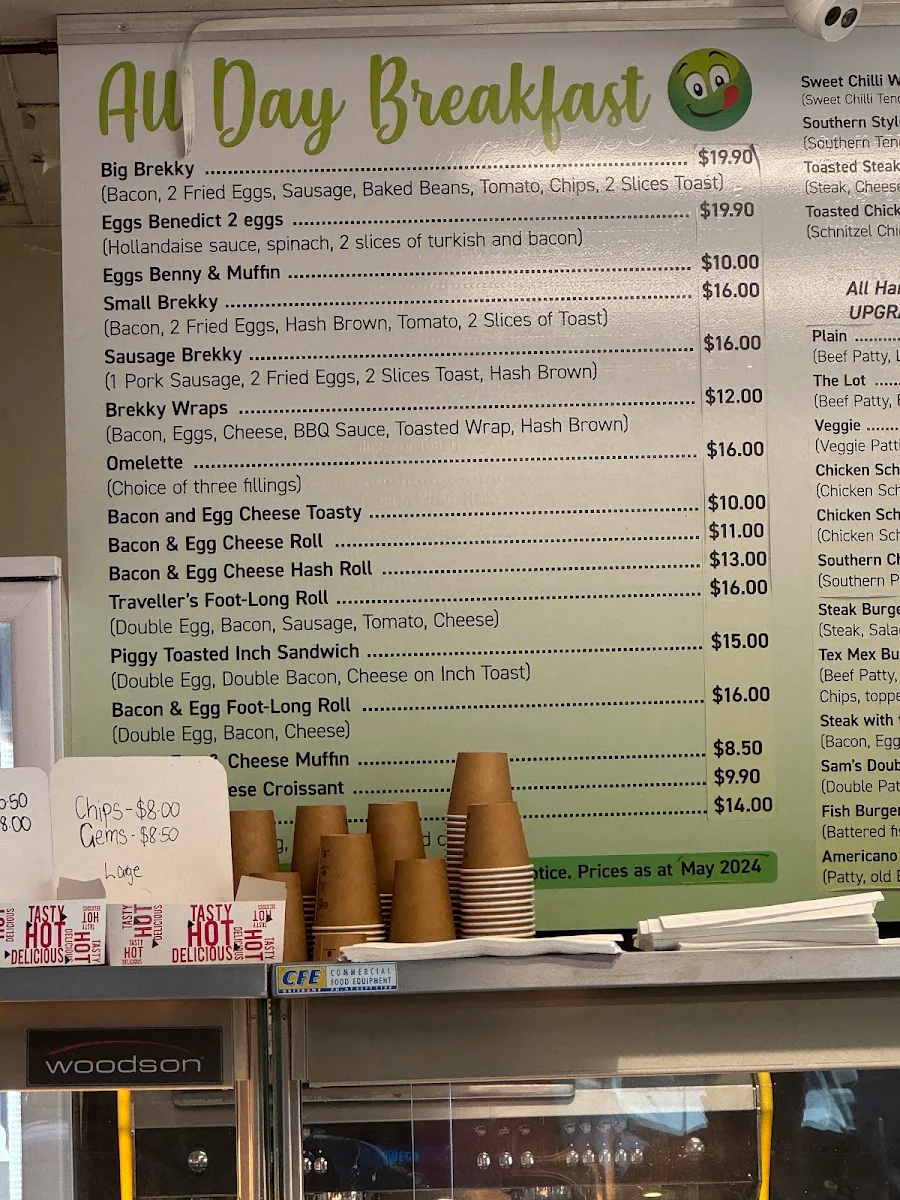 All Day Breakfast
Big Brekky ........ $19.90
(Bacon, 2 Fried Eggs, Sausage, Baked Beans, Tomato, Chips, 2 Slices Toast)
Eggs Benedict 2 eggs ........ $19.90
(Hollandaise sauce, spinach, 2 slices of turkish and bacon)
Eggs Benny & Muffin ........ $10.00
Small Brekky ........ $16.00
(Bacon, 2 Fried Eggs, Hash Brown, Tomato, 2 Slices of Toast)
Sausage Brekky ........ $16.00
(1 Pork Sausage, 2 Fried Eggs, 2 Slices Toast, Hash Brown)
Brekky Wraps ........ $12.00
(Bacon, Eggs, Cheese, BBQ Sauce, Toasted Wrap, Hash Brown)
Omelette ........ $16.00
(Choice of three fillings)
Bacon and Egg Cheese Toasty ........ $10.00
Bacon & Egg Cheese Roll ........ $11.00
Bacon & Egg Cheese Hash Roll ........ $13.00
Traveller's Foot-Long Roll ........ $16.00
(Double Egg, Bacon, Sausage, Tomato, Cheese)
Piggy Toasted Inch Sandwich ........ $15.00
(Double Egg, Double Bacon, Cheese on Inch Toast)
Bacon & Egg Foot-Long Roll ........ $16.00
(Double Egg, Bacon, Cheese)
& Cheese Muffin ........ $8.50
ese Croissant ........ $9.90
$14.00
otice. Prices as at May 2024
Sweet Chilli W
(Sweet Chilli Tend
Southern Styl
(Southern Ten
Toasted Steak
(Steak, Cheese
Toasted Chick
(Schnitzel Chi
All Ha
UPGRA
Plain ....
(Beef Patty, L
The Lot ....
(Beef Patty, B
Veggie ....
(Veggie Patti
Chicken Sch
(Chicken Sch
Chicken Sch
(Chicken Sch
Southern Ch
(Southern P
Steak Burge
(Steak, Sala
Tex Mex Bu
(Beef Patty,
Chips, toppe
Steak with
(Bacon, Egg
Sam's Doub
(Double Pat
Fish Burger
(Battered fis
Americano
(Patty, old
0.50
8.00
Chips-$8.00
Gems-$8.50
Large
TASTY
HOT
DELICIOUS
TASTY
HOT
DELICIOUS
CFE COMMERCIAL
FOOD EQUIPMENT
woodson